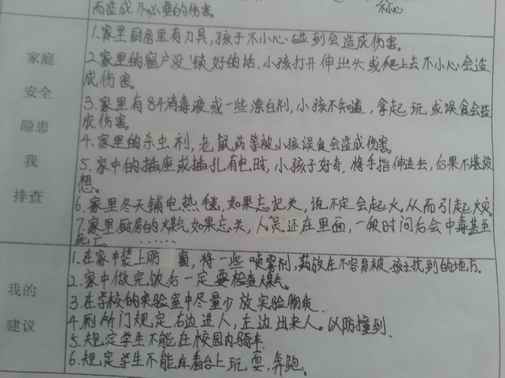 而造成不必要的伤害。
家庭安全隐患我排查
1.家里厨房里有刀具,孩子不小心碰到会造成伤害。
2.家里的窗户没锁好的话,小孩打开伸出头或爬上去不小心会造
成伤害。
3.家里有84消毒液或一些漂白剂,小孩不知道,拿起玩或误食会造
成伤害。
4.家里的杀虫剂,老鼠药等被小孩误食会造成伤害。
5.家中的插座或插孔有电时,小孩子好奇,将手指伸进去,后果不堪设
想。
6.家里冬天铺电热毯,如果忘记关,说不定会起火,从而引起火灾
7.家里厨房的煤气如果忘关,人员还在里面,一段时间后会中毒甚至
死亡 ......
我的建议
1.在家中装上防 窗,将一些喷雾剂,药放在不容易被孩子找到的地方。
2.家中做完饭后一定要检查煤气。
3.在学校的实验室中尽量少放实验物质
4.厕所门规定右边进人,左边出来人。以防撞到.
5.规定学生不能在校园内骑车.
6.规定学生不能在 台上玩耍,奔跑。